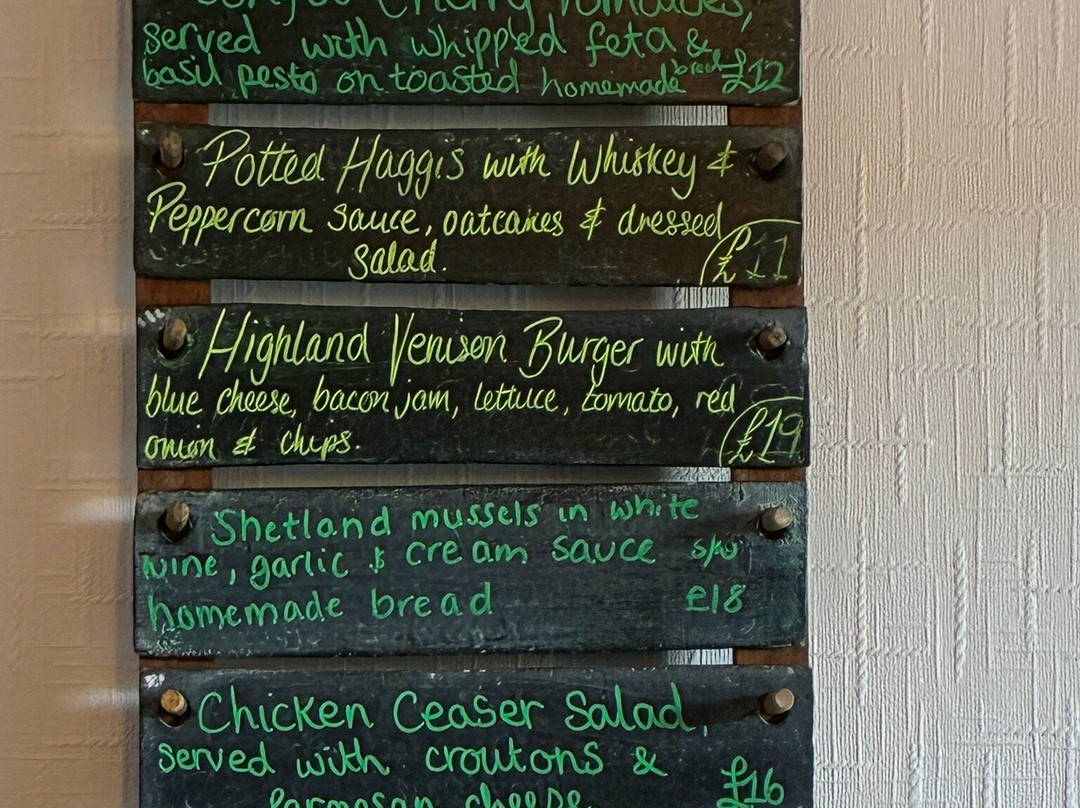 Cherry Tomatoes,
served with whipped feta &
basil pesto on toasted homemade bread £12
Potted Haggis with Whiskey &
Peppercorn sauce, oatcakes & dressed
salad. £11
Highland Venison Burger with
blue cheese, bacon jam, lettuce, tomato, red
onion & chips. £19
Shetland mussels in white
wine, garlic & cream sauce s/w
homemade bread £18
Chicken Ceaser Salad,
served with croutons &
parmesan cheese. £16